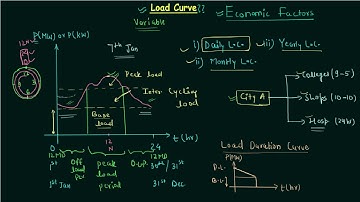 Load Curve
Economic Factors
Variable
12N
P(MW) or P(kW)
7th Jan
i) Daily L.C.
iii) Yearly L.C.
ii) Montly L.C.
Peak load
Inter Cycling
load
Base
load
City A
Colleges (9-5)
Shops (10-10)
Hosp (24hr)
Load Duration Curve
P(MW)
P.L.
B.L.
t (hr)
t (hr)
0
12
24
12MD
N
12MD
1st
Off
peak
30th / 31st
load
load
1st Jan
period
31st Dec